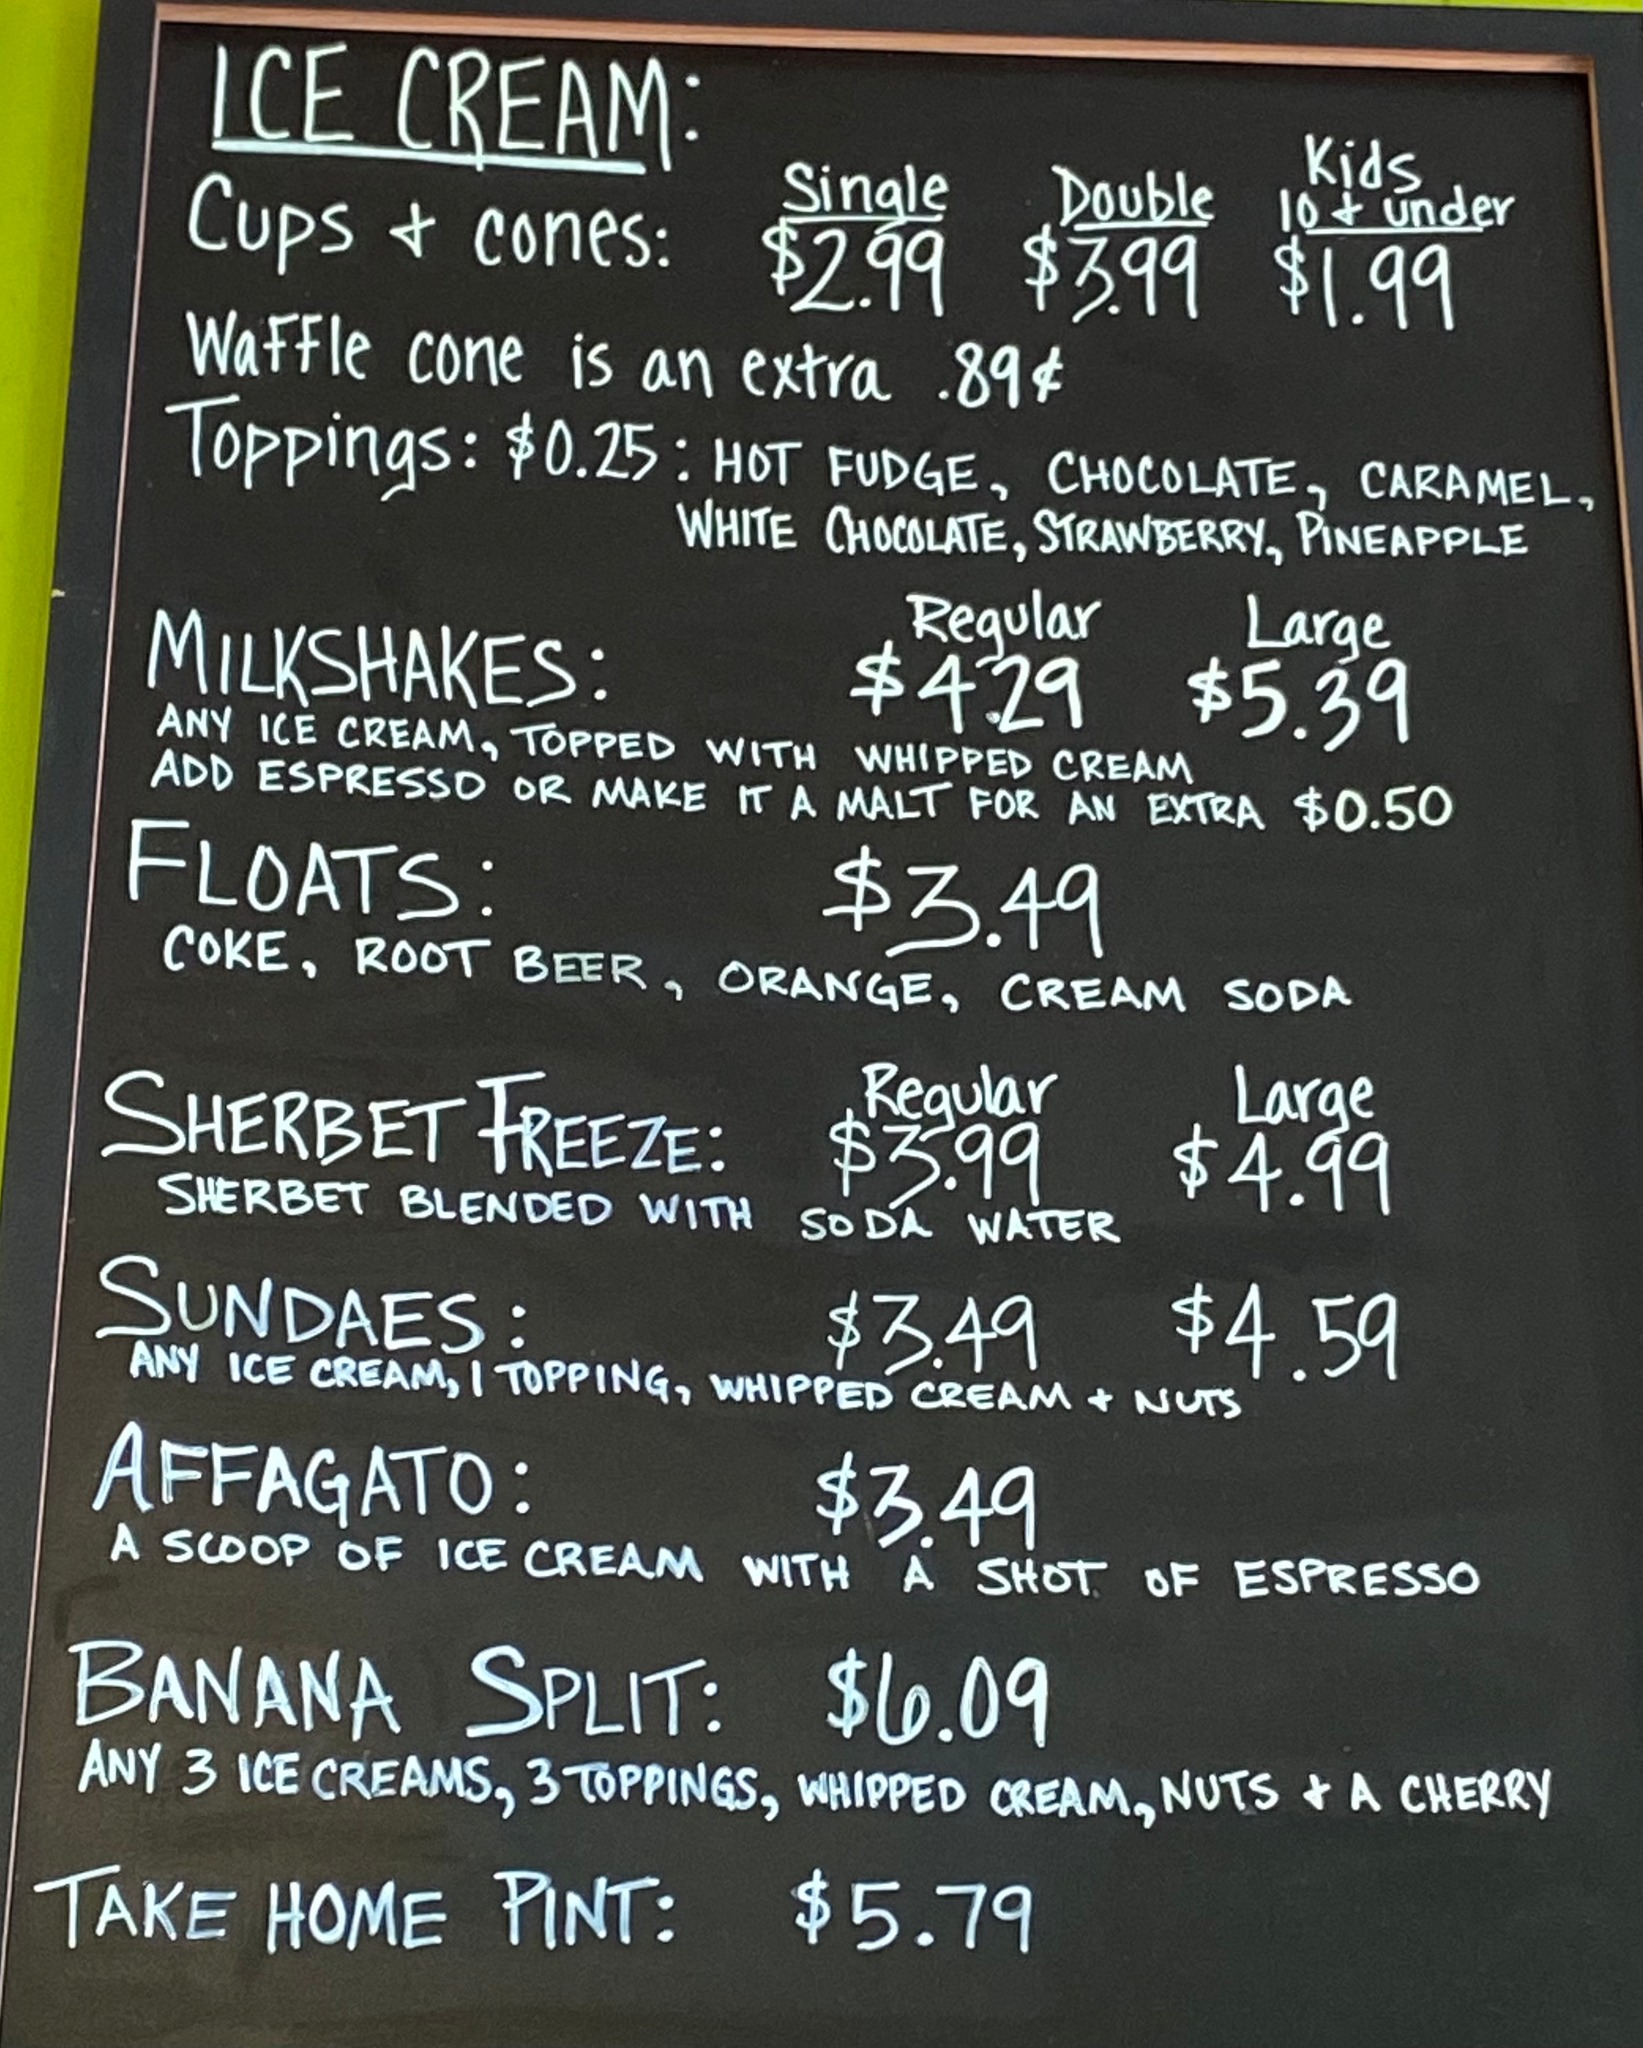 ICE CREAM:
Single Double Kids
10 + under
Cups + cones: $2.99 $3.99 $1.99
Waffle cone is an extra .89¢
Toppings: $0.25: HOT FUDGE, CHOCOLATE, CARAMEL,
WHITE CHOCOLATE, STRAWBERRY, PINEAPPLE
Regular Large
MILKSHAKES: $4.29 $5.39
ANY ICE CREAM, TOPPED WITH WHIPPED CREAM
ADD ESPRESSO OR MAKE IT A MALT FOR AN EXTRA $0.50
FLOATS: $3.49
COKE, ROOT BEER, ORANGE, CREAM SODA
Regular Large
SHERBET FREEZE: $3.99 $4.99
SHERBET BLENDED WITH SODA WATER
SUNDAES: $3.49 $4.59
ANY ICE CREAM, 1 TOPPING, WHIPPED CREAM + NUTS
AFFAGATO: $3.49
A SCOOP OF ICE CREAM WITH A SHOT OF ESPRESSO
BANANA SPLIT: $6.09
ANY 3 ICE CREAMS, 3 TOPPINGS, WHIPPED CREAM, NUTS + A CHERRY
TAKE HOME PINT: $5.79